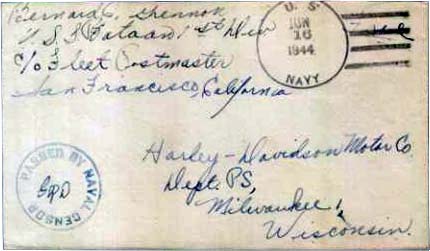 Bernard C. Shennok
U.S.S Bataan 1st Div
c/o Fleet Postmaster
San Francisco, California
U. S.
JUN
16
1944
NAVY
Free
PASSED BY NAVAL CENSOR
Harley-Davidson Motor Co.
Dept. PS,
Milwaukee,
Wisconsin.